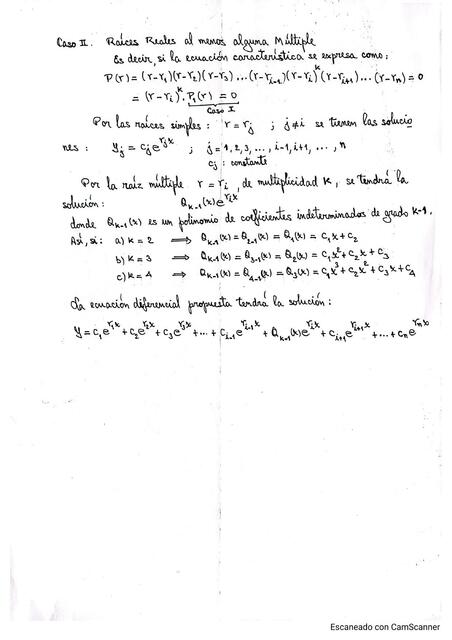 Caso II. Raíces Reales al menos alguna Múltiple
Es decir, si la ecuación característica se expresa como:
P(r) = (r-r₁)(r-r₂)(r-r₃)...(r-rᵢ₋₁)(r-rᵢ)ᵏ(r-rᵢ₊₁)...(r-rₙ) = 0
= (r-rᵢ)ᵏ. P₁(r) = 0
Caso I
Por las raíces simples: r = rⱼ ; j≠i se tienen las solucio
nes: yⱼ = cⱼe^{rⱼx} ; j = 1, 2, 3, ..., i-1, i+1, ..., n
cⱼ : constante
Por la raíz múltiple r = rᵢ, de multiplicidad K, se tendrá la
solución: Qₖ₋₁(x)e^{rᵢx}
donde Qₖ₋₁(x) es un polinomio de coeficientes indeterminados de grado K-1.
Así, si: a) k = 2 ⟹ Qₖ₋₁(x) = Q₂₋₁(x) = Q₁(x) = c₁x + c₂
b) k = 3 ⟹ Qₖ₋₁(x) = Q₃₋₁(x) = Q₂(x) = c₁x² + c₂x + c₃
c) k = 4 ⟹ Qₖ₋₁(x) = Q₄₋₁(x) = Q₃(x) = c₁x³ + c₂x² + c₃x + c₄
La ecuación diferencial propuesta tendrá la solución:
y = c₁e^{r₁x} + c₂e^{r₂x} + c₃e^{r₃x} + ... + cᵢ₋₁e^{rᵢ₋₁x} + Qₖ₋₁(x)e^{rᵢx} + cᵢ₊₁e^{rᵢ₊₁x} + ... + cₙe^{rₙx}
Escaneado con CamScanner